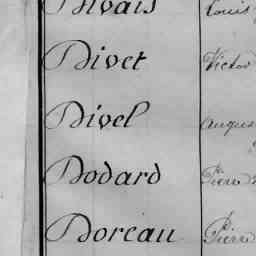 Divais Louis
Divet Victor
Divel Augus
Dodard Pierre
Doreau Pierre